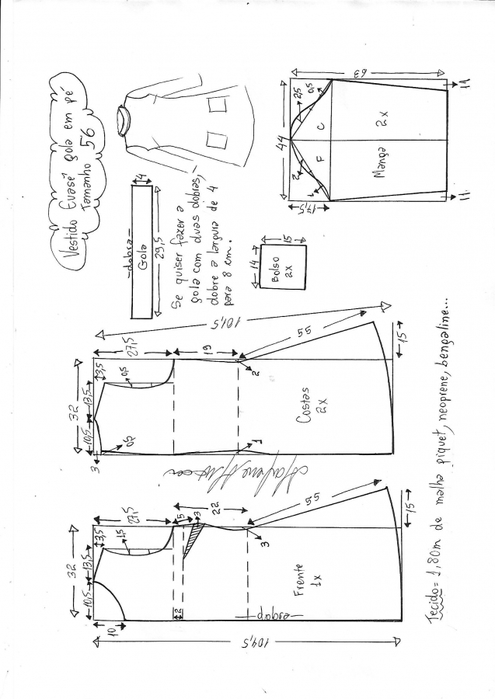 Vestido Evasê gola em pé
Tamanho 56
4
-dobra-
Gola
29,5
Se quiser fazer a
gola com duas dobras,
dobre a largura de 4
para 8 cm.
44
17,5
63
2
1
F
C
25
0,5
Manga
2x
11
11
14
15
Bolso
2x
32
10,5
13,5
3
0,5
3,5
0,5
27,5
101,5
19
2
1
55
15
Costas
2x
32
10,5
13,5
10
3,5
1,5
27,5
5
3
2
22
3
55
15
104,5
Frente
1x
-dobra-
Tecido= 1,80m de malha piquet, neoprene, bengaline...